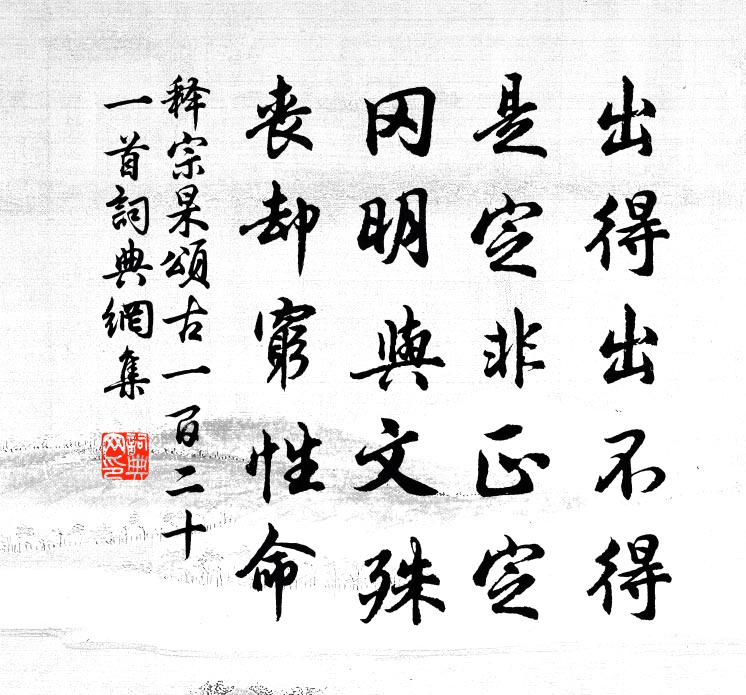 出得出不得
是定非正定
罔明與文殊
喪却窮性命
释宗杲頌古一百二十
一首詞典網集
詞典網印